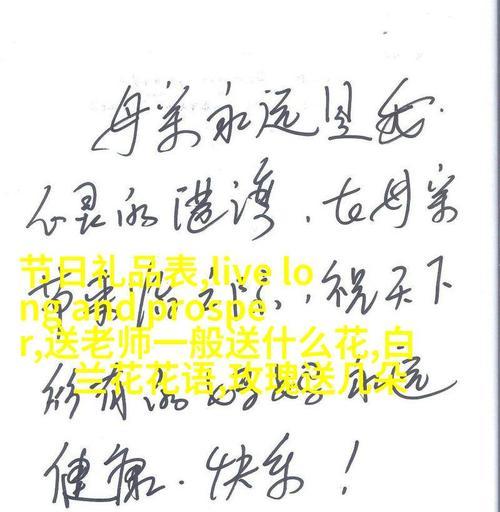 母亲永远是我
心灵的港湾，在母亲
节来临之际，祝天下
所有的母亲永远
健康、快乐！
节日礼品表,live lo
ng and prospe
r,送老师一般送什么花,白
兰花花语,玫瑰送几朵